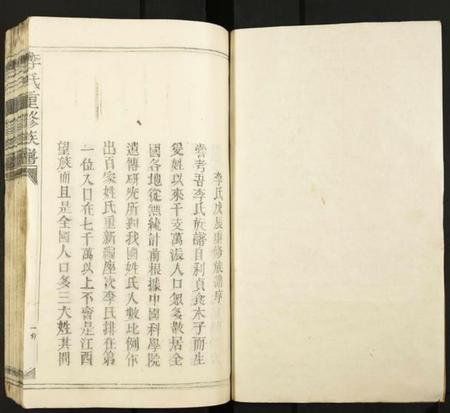 李氏戊辰重修族譜序
嘗考吾李氏族譜自利貞食木子而生
爰姓以來千支萬派人口眾多散居全
國各地從無統計前根據中國科學院
遺傳研究所對我國姓氏人數比例作
出百家姓氏重新編座次李氏排在第
一位人口在七千萬以上不啻是江西
望族而且是全國人口多三大姓其間
李氏重修族譜
一